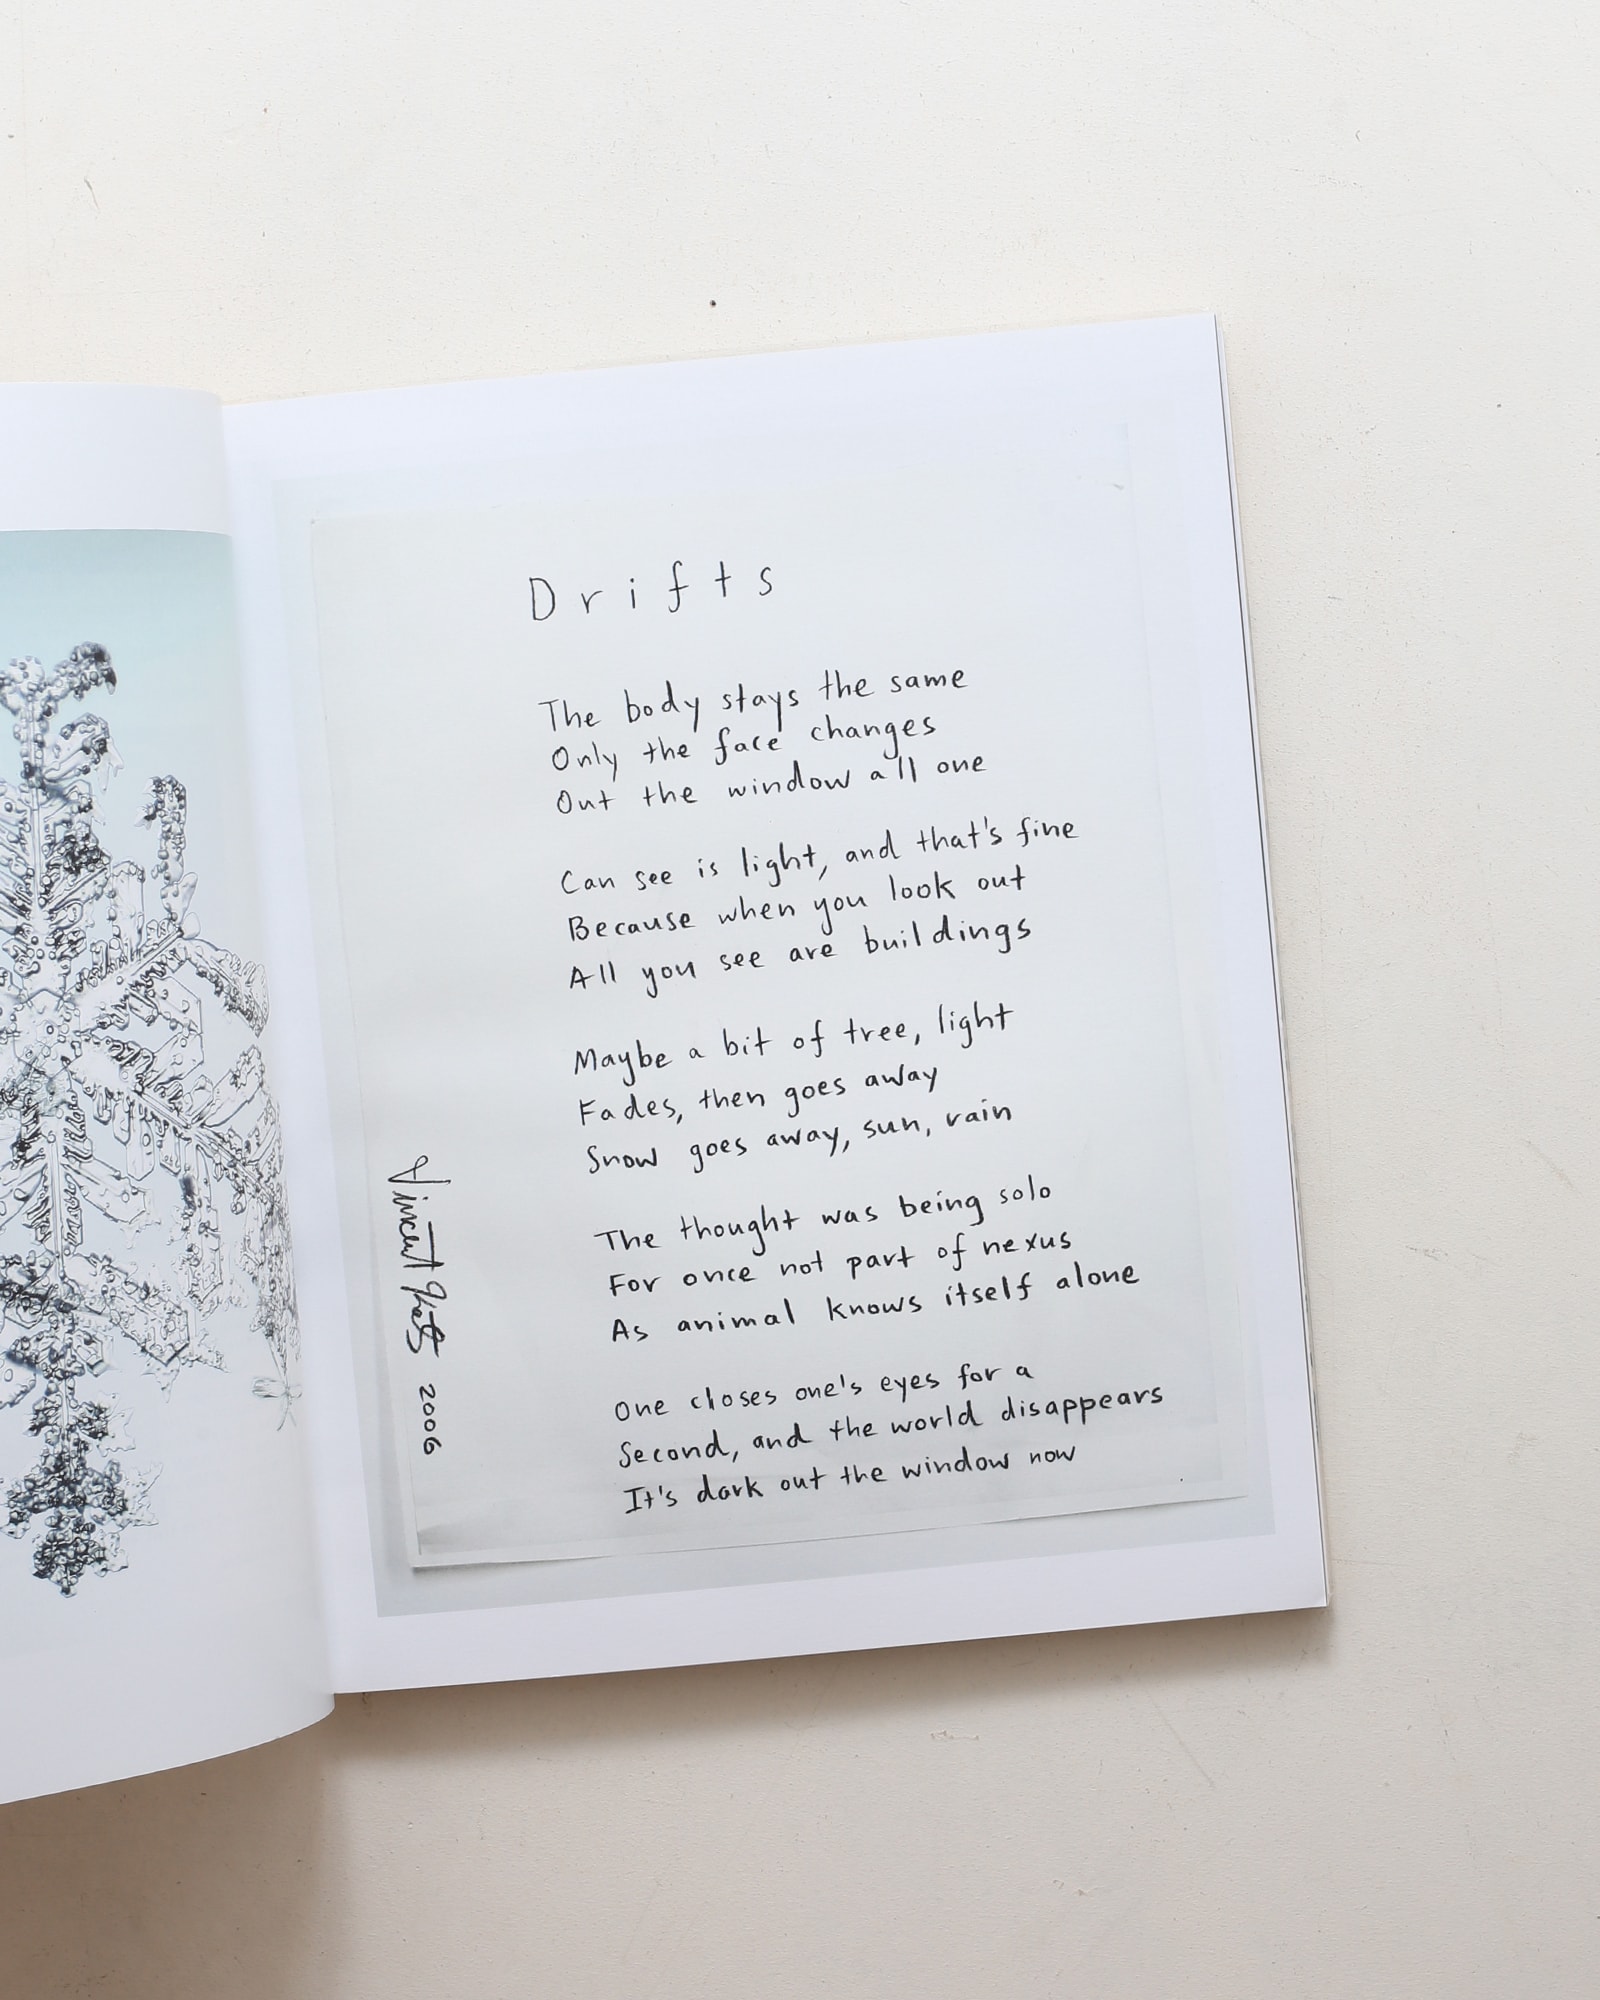 Drifts
The body stays the same
Only the face changes
Out the window all one
Can see is light, and that's fine
Because when you look out
All you see are buildings
Maybe a bit of tree, light
Fades, then goes away
Snow goes away, sun, rain
The thought was being solo
For once not part of nexus
As animal knows itself alone
One closes one's eyes for a
Second, and the world disappears
It's dark out the window now
Vincent Katz 2006